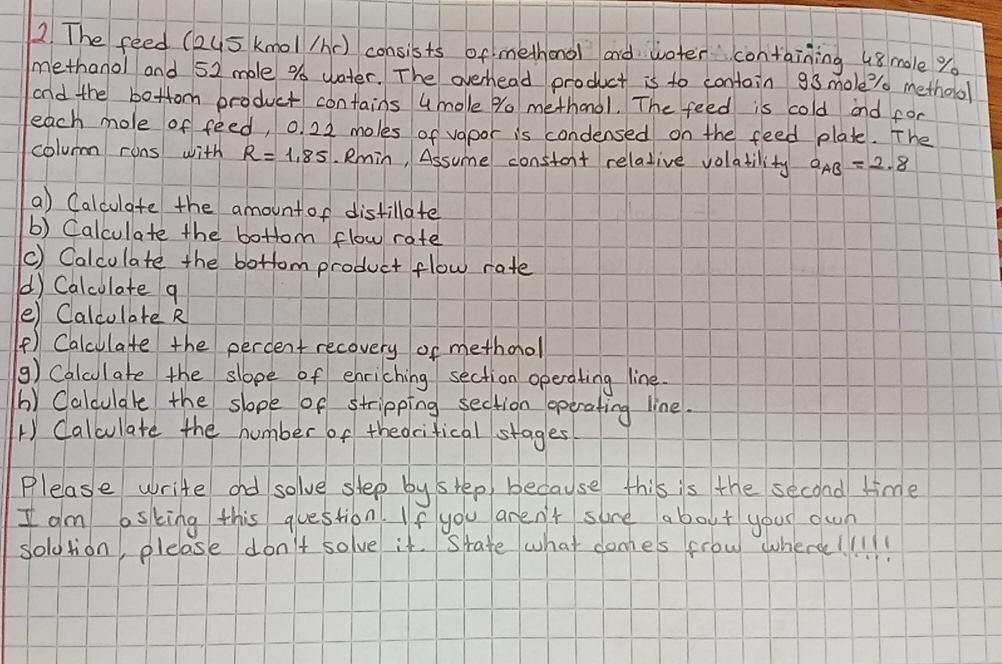 2. The feed (245 kmol/hr) consists of methanol and water containing 48 mole %
methanol and 52 mole % water. The overhead product is to contain 93 mole % methanol
and the bottom product contains 4 mole % methanol. The feed is cold and for
each mole of feed, 0.22 moles of vapor is condensed on the feed plate. The
column runs with R = 1.85. Rmin, Assume constant relative volatility aAB = 2.8
a) Calculate the amount of distillate
b) Calculate the bottom flow rate
c) Calculate the bottom product flow rate
d) Calculate q
e) Calculate R
f) Calculate the percent recovery of methanol
g) Calculate the slope of enriching section operating line.
h) Calculate the slope of stripping section operating line.
ı) Calculate the number of theoritical stages.
Please write and solve step by step, because this is the second time
I am asking this question. If you aren't sure about your own
solution, please don't solve it. State what comes frow where!!!!!!